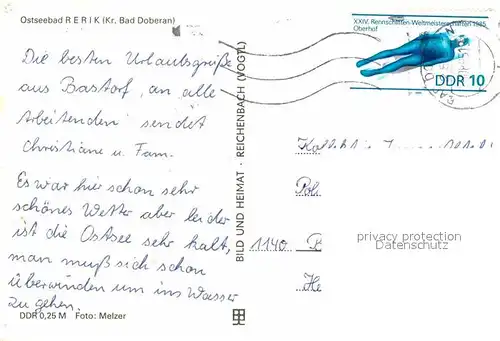 Ostseebad R E R I K (Kr. Bad Doberan)
Die besten Urlaubsgrüße
aus Bastorf, an alle
Arbeitenden sendet
Christiane u. Fam.
Es war hier schon sehr
schönes Wetter aber leider
ist die Ostsee sehr kalt,
man muß sich schon
überwinden um ins Wasser
zu gehen.
DDR 0,25 M Foto: Melzer
BILD UND HEIMAT · REICHENBACH (VOGTL)
XXIV. Rennschlitten-Weltmeisterschaften 1985
Oberhof
DDR 10
privacy protection
Datenschutz
1140